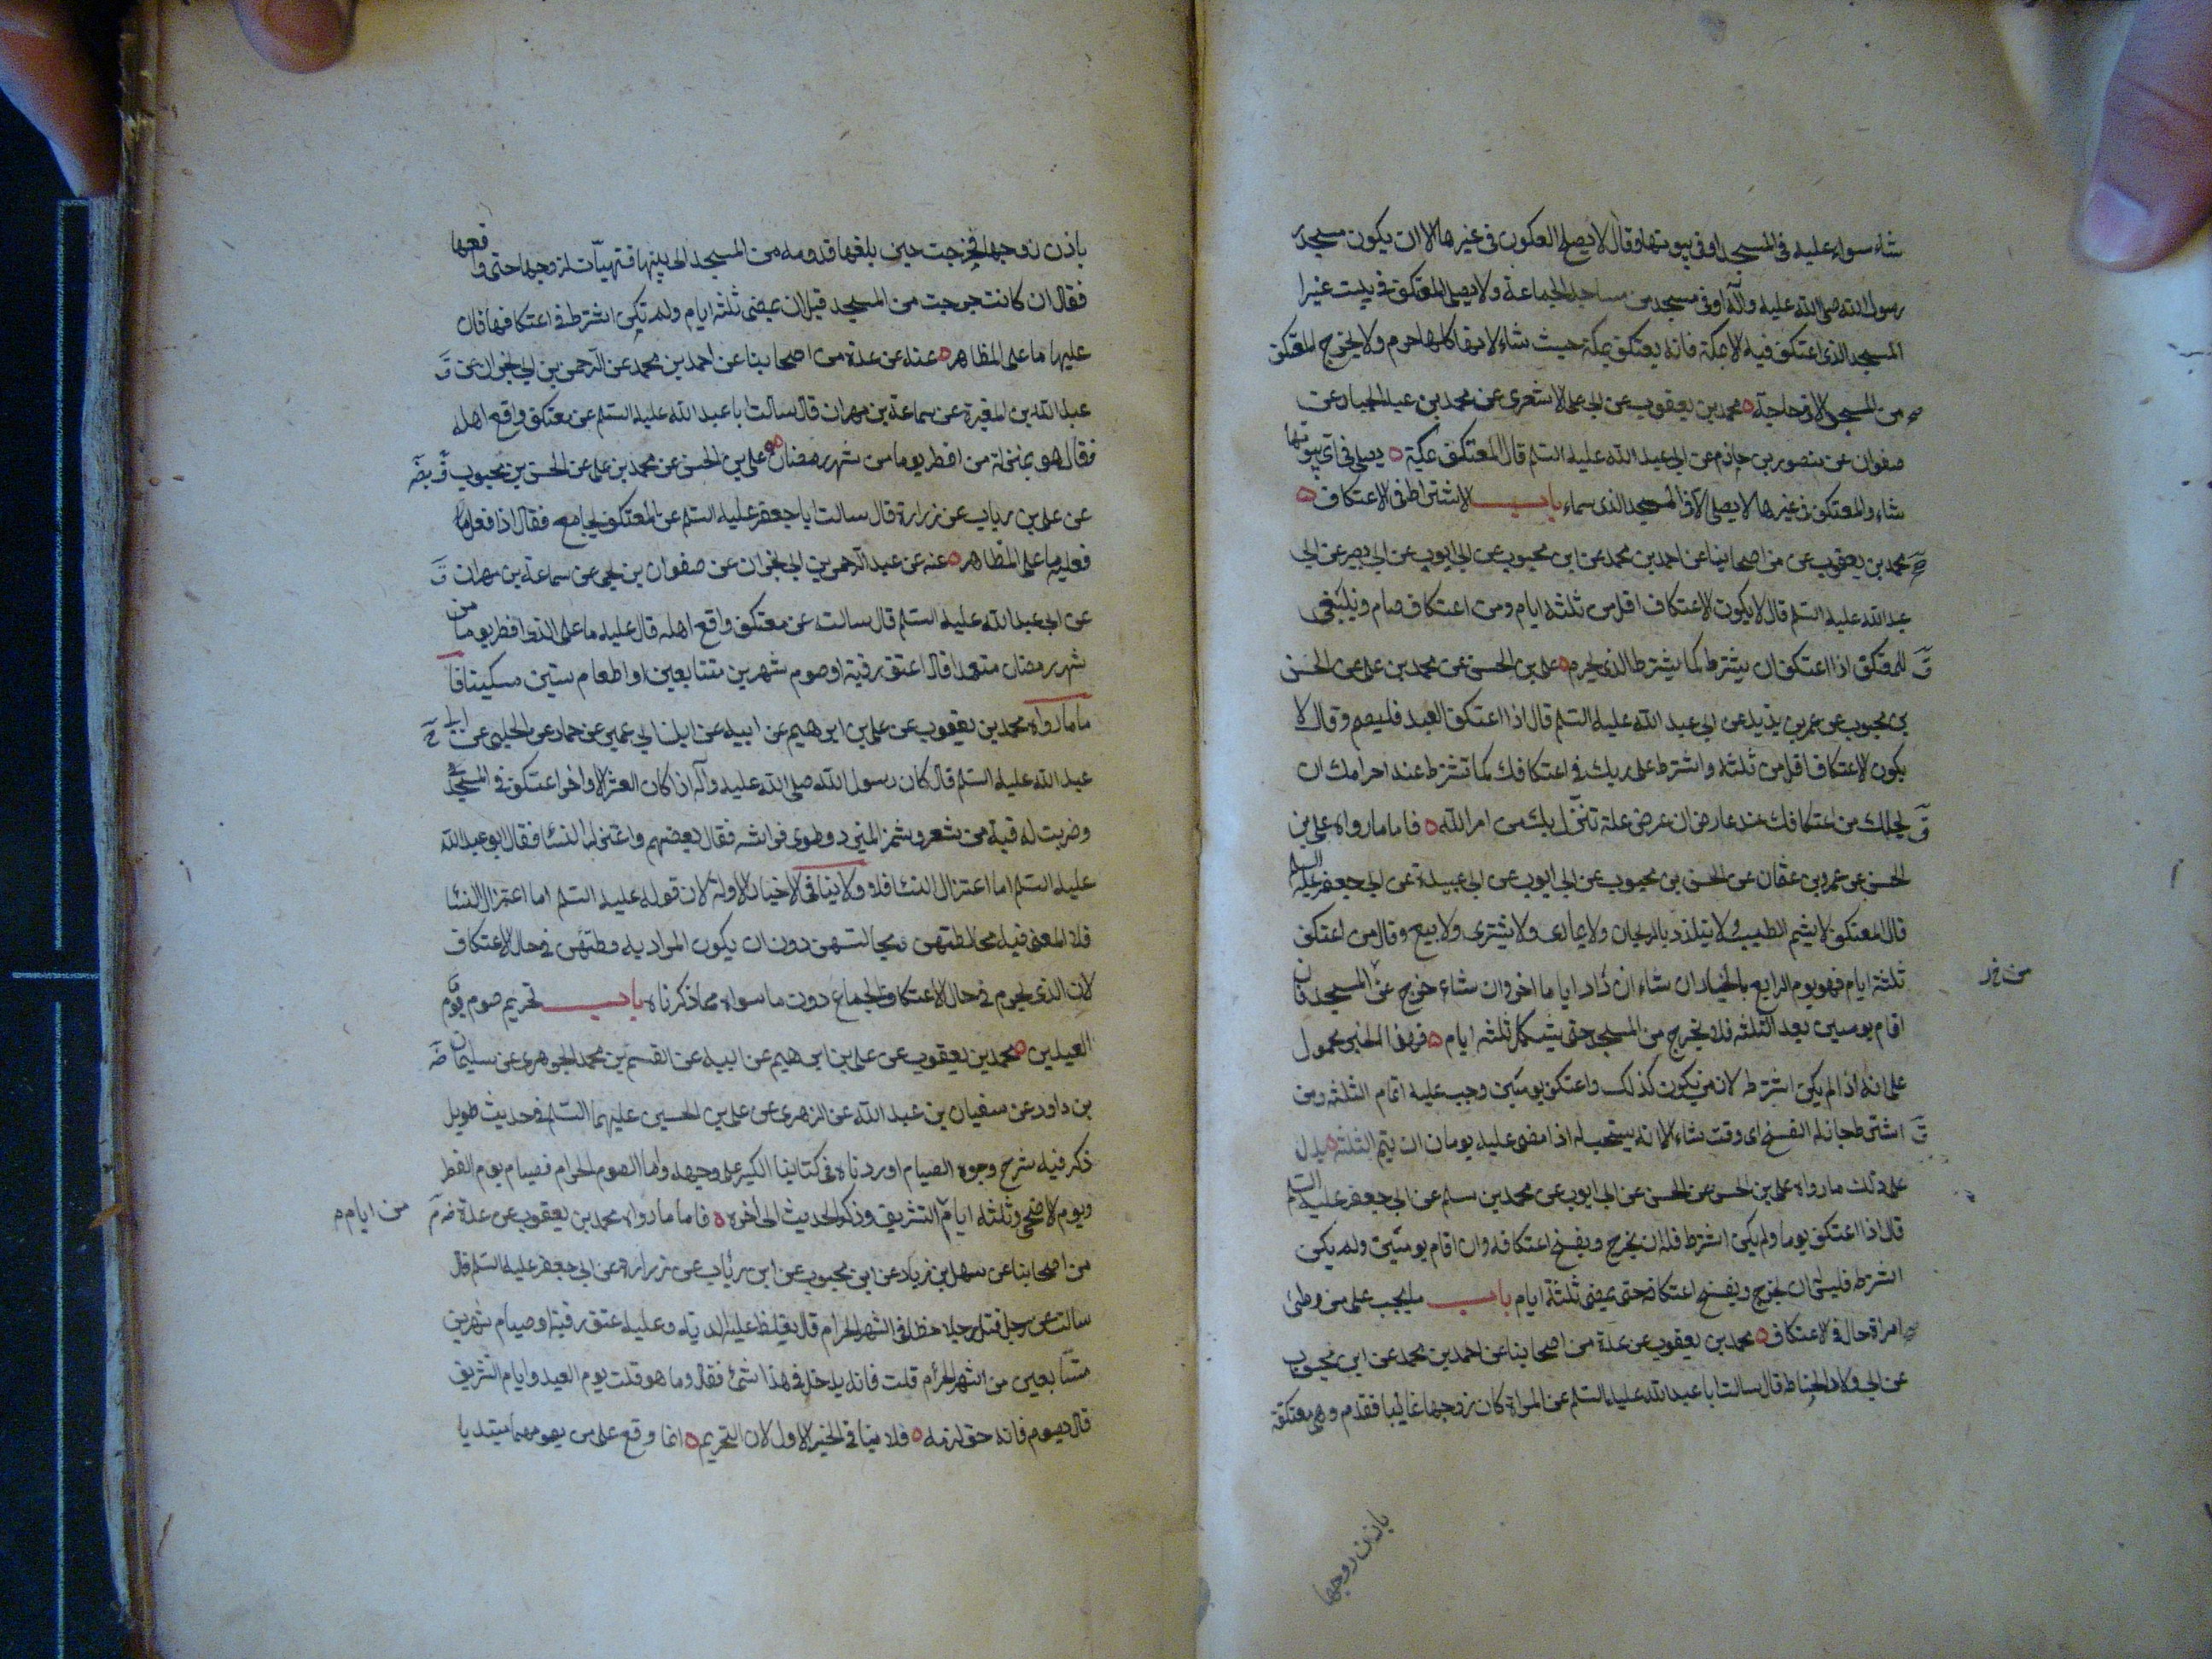 شاء سواء عليه فى المسجد او فى بيوتها وقال لا يصلح العكوف فى غيرها الا ان يكون مسجد
رسول الله صلى الله عليه وآله او فى مسجد من مساجد الجماعة ولا يصلى المعتكف فى بيت غير
المسجد الذى اعتكف فيه الا بمكة فانه يعتكف بمكة حيث شاء لانها كلها حرم ولا يخرج المعتكف
من المسجد الا فى حاجة محمد بن يعقوب عن ابى على الاشعرى عن محمد بن عبد الجبار عن
صفوان عن منصور بن حازم عن ابى عبد الله عليه السلم قال المعتكف بمكة يصلى فى اى بيوتها
شاء والمعتكف فى غيرها لا يصلى الا فى المسجد الذى سماه باب الاشتراط فى الاعتكاف
محمد بن يعقوب عن من اصحابنا عن احمد بن محمد عن ابن محبوب عن ابى ايوب عن ابى بصير عن ابى
عبد الله عليه السلم قال لا يكون الاعتكاف اقل من ثلثة ايام ومن اعتكف صام وينبغى
للمعتكف اذا اعتكف ان يشترط كما يشترط الذى يحرم على بن الحسن عن محمد بن على عن الحسن
بن محبوب عن عمر بن يزيد عن ابى عبد الله عليه السلم قال اذا اعتكف العبد فليصم وقال لا
يكون الاعتكاف اقل من ثلثة واشترط على ربك فى اعتكافك كما تشترط عند احرامك ان
يحلك من اعتكافك عند عارض ان عرض علة تنزل بك من امر الله فاما ما رواه على بن
الحسن عن عمرو بن عثمان عن الحسن بن محبوب عن ابى ايوب عن ابى عبيدة عن ابى جعفر عليه السلم
قال المعتكف لا يشم الطيب ولا يتلذذ بالريحان ولا يمارى ولا يشترى ولا يبيع وقال من اعتكف
ثلثة ايام فهو يوم الرابع بالخيار ان شاء زاد اياما اخر وان شاء خرج عن المسجد فان
اقام يومين بعد الثلثة فلا يخرج من المسجد حتى يستكمل ثلثة ايام فهذا الخبر محمول
على انه اذا لم يكن اشترط لان من يكون كذلك واعتكف يومين وجب عليه اتمام الثلثة ومن
اشترط جاز له الفسخ اى وقت شاء الا انه يستحب له اذا مضى عليه يومان ان يتم الثلثة يدل
على ذلك ما رواه على بن الحسن عن الحسن عن ابى ايوب عن محمد بن مسلم عن ابى جعفر عليه السلم
قال اذا اعتكف يوما ولم يكن اشترط فله ان يخرج ويفسخ اعتكافه وان اقام يومين ولم يكن
اشترط فليس له ان يخرج ويفسخ اعتكافه حتى يمضى ثلثة ايام باب ما يجب على من وطئ
امراة حال الاعتكاف محمد بن يعقوب عن عدة من اصحابنا عن احمد بن محمد عن ابن محبوب
عن ابى ولاد الحناط قال سالت ابا عبد الله عليه السلم عن المراة كان زوجها غائبا فقدم وهى معتكفة
باذن زوجها
باذن زوجها فخرجت حين بلغها قدومه من المسجد الى بيتها فتهيأت لزوجها حتى واقعها
فقال ان كانت خرجت من المسجد قبل ان يمضى ثلثة ايام ولم تكن اشترط فى اعتكافها فان
عليها ما على المظاهر عنه عن عدة من اصحابنا عن احمد بن محمد عن الرحمن بن ابى نجران عن
عبد الله بن المغيرة عن سماعة بن مهران قال سالت ابا عبد الله عليه السلم عن معتكف واقع اهله
فقال هو بمنزلة من افطر يوما من شهر رمضان على بن الحسن عن محمد بن على عن الحسن بن محبوب
عن على بن رياب عن زرارة قال سالت ابا جعفر عليه السلم عن المعتكف يجامع فقال اذا فعل
فعليه ما على المظاهر عنه عن عبد الرحمن بن ابى نجران عن صفوان بن يحيى عن سماعة بن مهران
عن ابى عبد الله عليه السلم قال سالت عن معتكف واقع اهله قال عليه ما على الذى افطر يوما من
شهر رمضان متعمدا قال اعتق رقبة او صوم شهرين متتابعين او اطعام ستين مسكينا فا
ما ما رواه محمد بن يعقوب عن على بن ابرهيم عن ابيه عن ابن ابى عمير عن حماد عن الحلبى عن ابى
عبد الله عليه السلم قال كان رسول الله صلى الله عليه وآله اذا كان العشر الاواخر اعتكف فى المسجد
وضربت له قبة من شعر وشمر الميزر وطوى فراشه فقال بعضهم واعتزل النسا فقال ابو عبد الله
عليه السلم اما اعتزال النسا فلا ولا ينافى الاخبار الاولة لان قوله عليه السلم اما اعتزال النسا
فلا المعنى فيه مخالطتهن ومجالستهن دون ان يكون المراد به وطئهن فى حال الاعتكاف
لان الذى يحرم فى حال الاعتكاف الجماع دون ما سواه مما ذكرناه باب تحريم صوم يوم
العيدين محمد بن يعقوب عن على بن ابرهيم عن ابيه عن القسم بن محمد الجوهرى عن سليمان
بن داود عن سفيان بن عبد الله عن الزهرى عن على بن الحسين عليهما السلم فى حديث طويل
ذكر فيه شرح وجوه الصيام اوردناه فى كتابنا الكبير على وجهه واما الصوم الحرام فصيام يوم الفطر
ويوم الاضحى وثلثة ايام التشريق وذكر الحديث الى آخره فاما ما رواه محمد بن يعقوب عن عدة
من ايام
من اصحابنا عن سهل بن زياد عن ابن محبوب عن ابن رئاب عن زرارة عن ابى جعفر عليه السلم قال
سالت عن رجل قتل رجلا خطا فى الشهر الحرام قال يغلظ عليه الدية وعليه عتق رقبة او صيام شهرين
متتابعين من اشهر الحرم قلت فانه يدخل فى هذا شئ فقال وما هو قلت يوم العيد وايام التشريق
قال يصوم فانه حق لزمه فلا ينافى الخبر الاول لان التحريم انما وقع على من يصومهما مبتديا